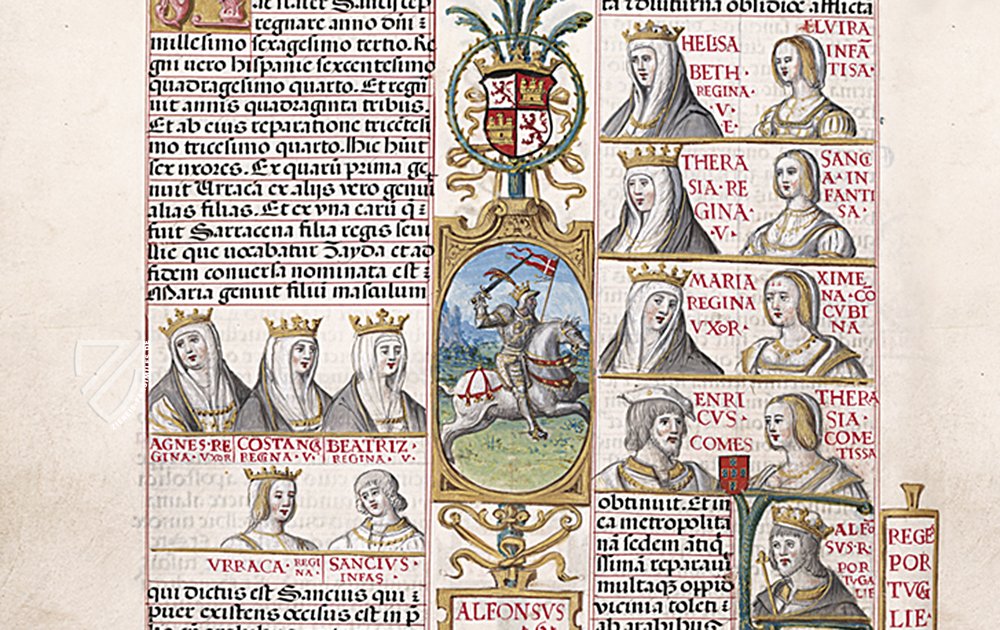 regnare anno dñi
millesimo sexagesimo tertio. Re
gni vero hispanie sexcentesimo
quadragesimo quarto. Et regna
uit annis quadraginta tribus.
Et ab eius reparatione tricetesi
mo tricesimo quarto. Hic huit
sex uxores. Ex quarū prima ge
nuit Urracã ex alijs vero genuit
alias filias. Et ex vna carū q̃
fuit Sarracena filia regis seui
llie que vocabatur Zayda et ad
fidem conuersa nominata est
Maria genuit filiū masculum
AGNES·RE
GINA·VXOR
COSTANÇ
REGNA·V·
BEATRIZ·
REGINA·V·
VRRACA·REGI
NA·
SANCIVS·
INFAS·
qui dictus est Sancius qui
puer existens occisus est in p̃
ALFONSVS
·6·
ta ⁊ diuturna obsidiõe afflicta
HELISA
BETH·
REGINA
·V·
·E·
ELVIRA
INFÃ
TISA·
THERA
SIA·RE
GINA·
·V·
SANCI
A·IN
FANTI
SA·
MARIA
REGINA
VXOR·
XIME
NA·CO
CVBI
NA·
ENRI
CVS·
COMES
THERA
SIA·
COME
TISSA·
obtinuit. Et in
ea metropolita
nã sedem atiq̃
issimã reparauit
multaq̃ oppid
vicinia toleti
ALFÕ
SVS·R·
POR
TVGA
LIE·
REGES
POR
TVG
LIE·